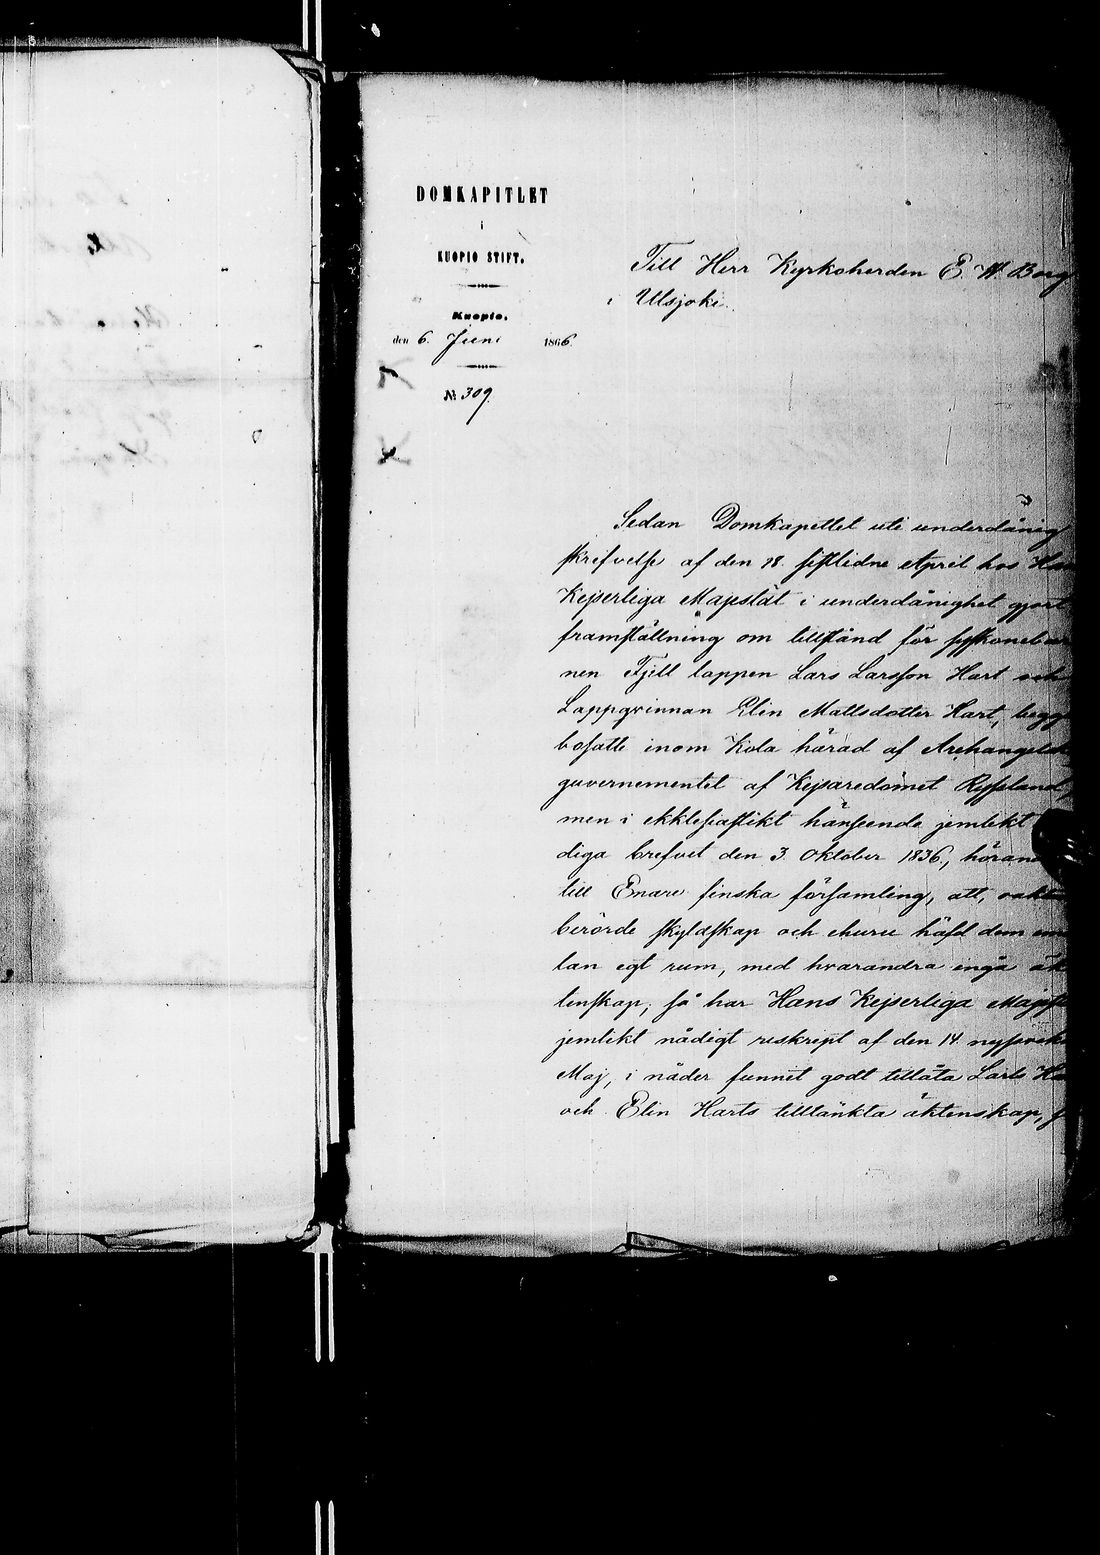 DOMKAPITLET
i
KUOPIO STIFT.
Kuopio.
den 6 Juni 1866.
№ 309.
Till Herr Kyrkoherden E. W. Borg
i Utsjoki.
Sedan Domkapitlet uti underdånig
skrifvelse af den 18 sistlidne April hos Hans
Kejserliga Majestät i underdånighet gjort
framställning om tillstånd för syskonebar
nen Fjell lappen Lars Larsson Hart och
Lappqvinnan Elin Mattsdotter Hart, begge
bosatte inom Kola härad af Archangelska
guvernementet af Kejsaredömet Ryssland,
men i ekklesiastikt hänseende jemlikt
diga brefvet den 3 Oktober 1836, höran
till Enare finska församling, att, oaktadt
berörde skyldskap och ehuru häfd dem emel
lan egt rum, med hvarandra ingå äk
tenskap, så har Hans Kejserliga Majestät
jemlikt nådigt reskript af den 14 nysvekne
Maj, i nåder funnit godt tillåta Lars Hart
och Elin Harts tilltänkta äktenskap,